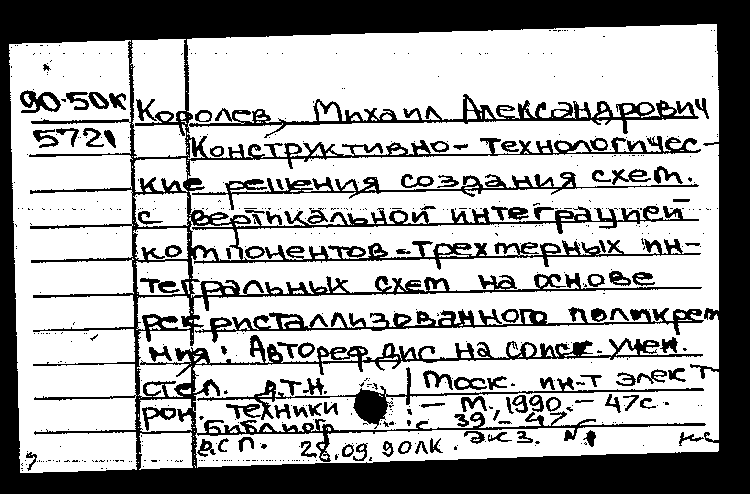 90-50к Королев, Михаил Александрович
5721 Конструктивно-технологичес-
кие решения создания схем.
с вертикальной интеграцией
компонентов-трехмерных ин-
тегральных схем на основе
рекристаллизованного поликрем
ния: Автореф. дис. на соиск. учен.
степ. д.т.н. / Моск. ин-т элект
рон. техники .- М, 1990.- 47с.
Библиогр.: с 39-47
ДСП. экз. №1
28.09.90